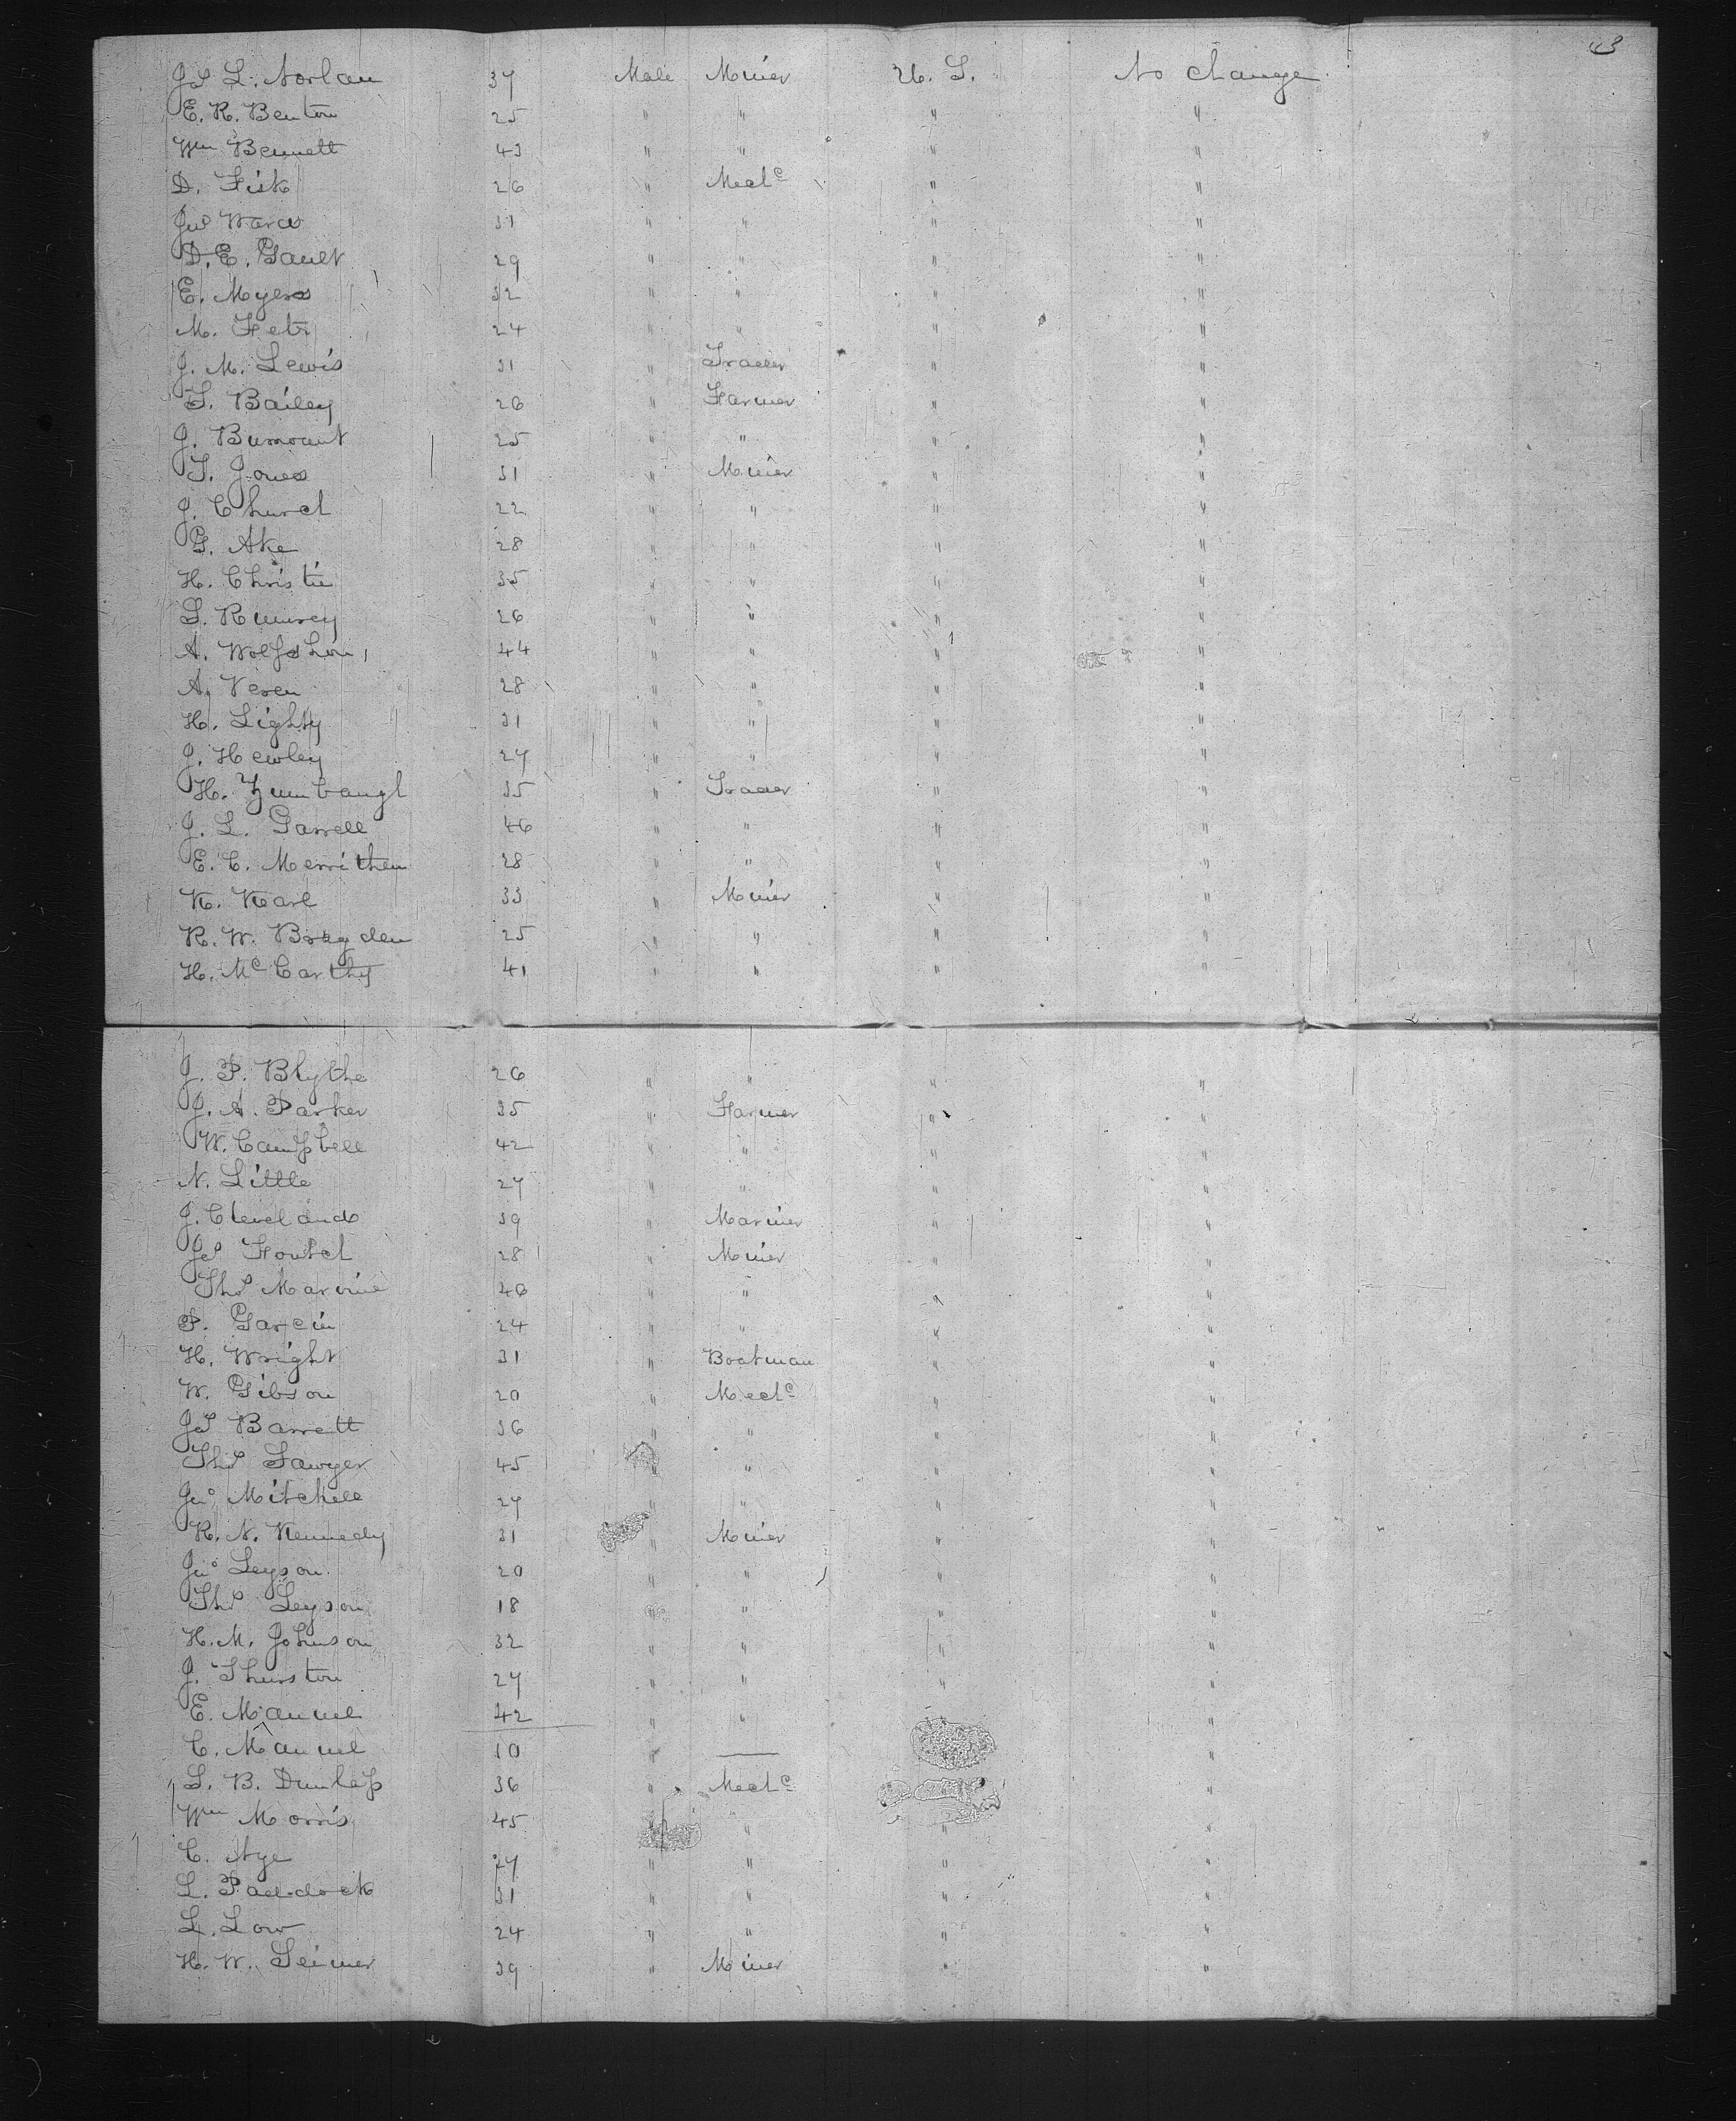 3
Jas L. Norlan 37 Male Miner U. S. No change
E. R. Benton 25 " " " "
Wm Bennett 43 " " " "
D. Fisk 26 " Mechc " "
Jno Ward 31 " " " "
D. E. Gault 29 " " " "
E. Myers 32 " " " "
M. Fetr 24 " " " "
J. M. Lewis 31 " Trader " "
S. Bailey 26 " Farmer " "
J. 25 " " " "
T. Jones 31 " Miner " "
J. Church 22 " " " "
G. Ake 28 " " " "
H. Christie 35 " " " "
S. Rumsey 26 " " " "
A. Wolfshon 44 " " " "
A. Veren 28 " " " "
H. Lighty 31 " " " "
J. Hewley 27 " " " "
H. Zumbaugh 35 " Trader " "
J. L. Garrell 46 " " " "
E. C. Merrithew 28 " " " "
K. Karl 33 " Miner " "
R. W. Bragden 25 " " " "
H. McCarthy 41 " " " "
J. P. Blythe 26 " " " "
J. A. Parker 35 " Farmer " "
W. Campbell 42 " " " "
N. Little 27 " " " "
J. Cleveland 39 " Mariner " "
Jas Foutch 28 " Miner " "
Thos 40 " " " "
P. Garcin 24 " " " "
H. Wright 31 " Boatman " "
W. Gibson 20 " Mechc " "
Jas Barrett 36 " " " "
Thos Sawyer 45 " " "
Jno Mitchell 27 " " " "
R. N. Kennedy 31 " Miner " "
Jno Leyson 20 " " " "
Thos Leyson 18 " " " "
H. M. Johnson 32 " " " "
J. Thurston 27 " " " "
E. Manuel 42 " " "
C. Manuel 10 " — "
L. B. Dunlap 36 " Mechc "
Wm Morris 45 " " " "
C. Nye 27 " " " "
L. Paddock 31 " " " "
L. Low 24 " " " "
H. W. Seimer 39 " Miner " "